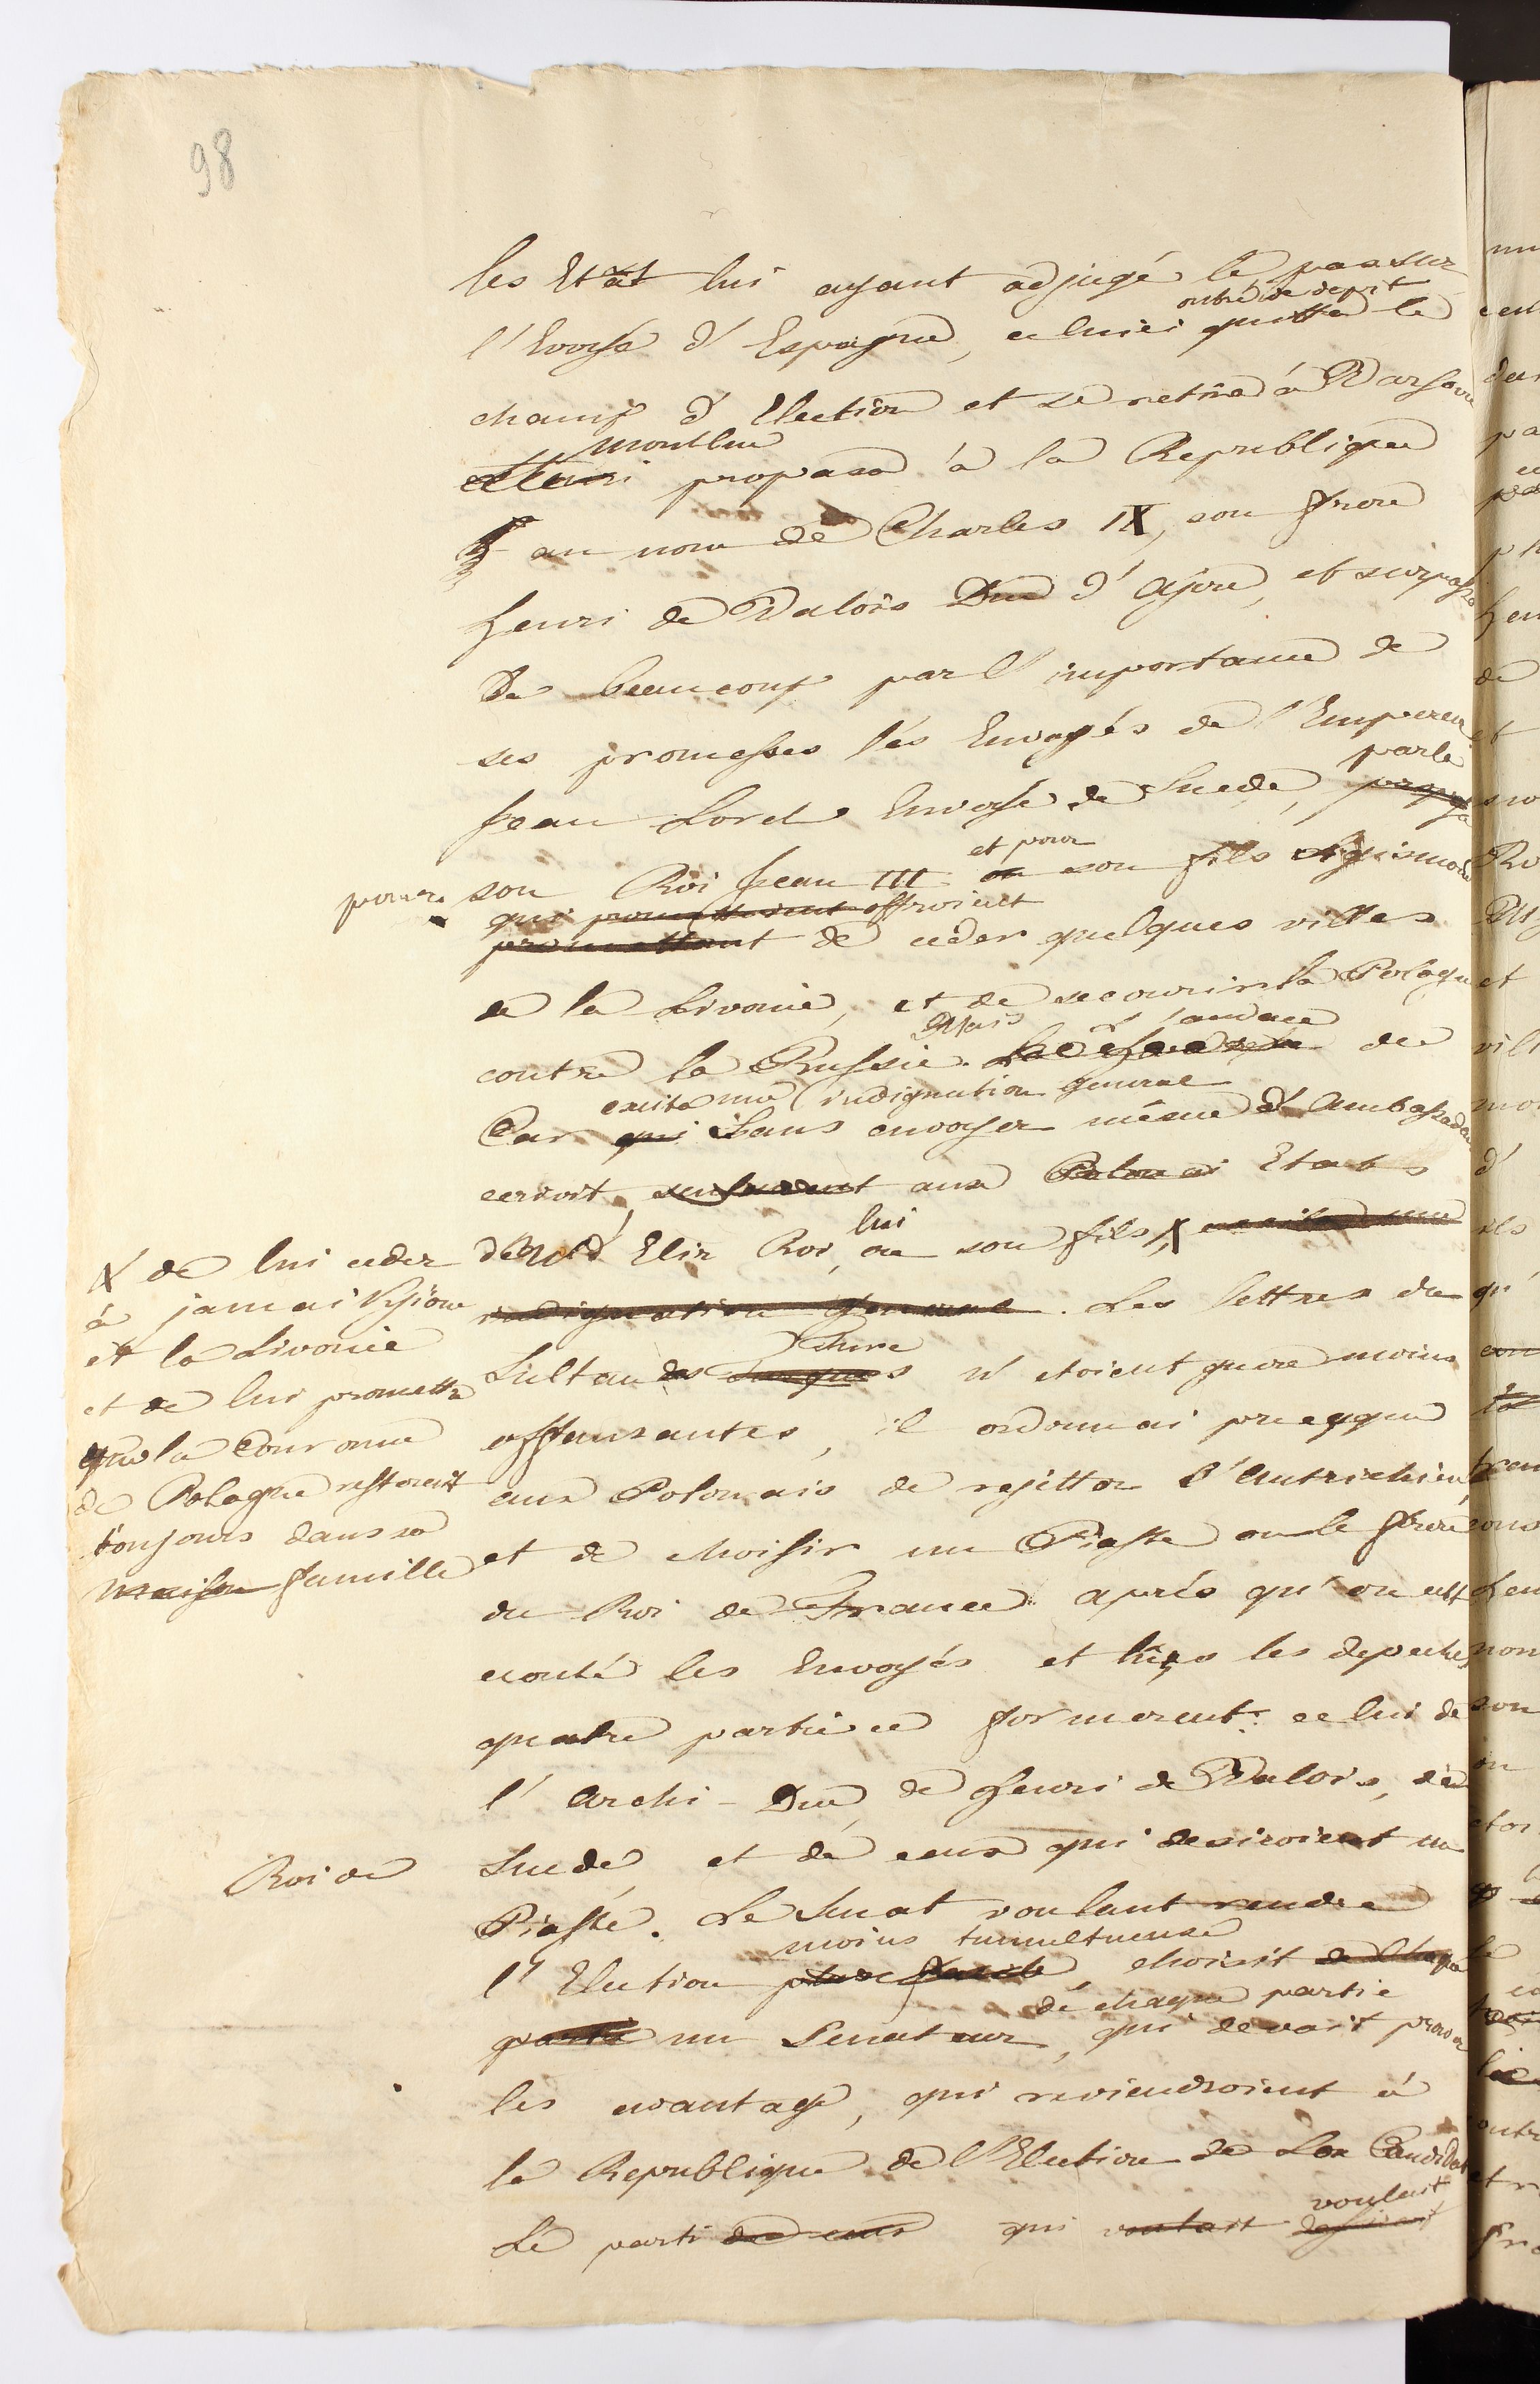 98
les Etat lui ayant adjugé le pas sur
outré de depit
l'Envoyé d'Espagne, celuici quitta le
champ d'Election et se retira à Varsovie
Montluc
Henri proposa à la Republique
au nom de Charles IX, son frere
henri de Valois Duc d'Ajou, et surpassa
de beaucoup par l'importance de
ses promesses les Envoyés de l'Empereur
parla
Jean Lorch Envoyé de Suede,
et pour
pour son Roi Jean III ou son fils Sigismond
qui promettoient offroient
promettant de ceder quelques villes
de la Livonie, et de secourir la Pologne
Mais l'audace
contre la Russie. de
excita une indignation general
Car qui sans envoyer même d'Ambassadeur
ecrivit, aux Polonai Etats
lui
d' Elir Roi, ou son fils, X excita une
indignation general. Les lettres du
X de lui ceder
à jamais Kijove
et la Livonie
et de lui promettre
que la Couronne
de Pologne resteroit
toujours dans sa
maison famille
Turc
Sultan des Turques n'etoient guere moins
offensantes, il ordonnai presque
aux Polonais de rejetter l'Autrichien,
et de choisir un Piaste ou le frere
du Roi de France. après qu'on eut
ecouté les Envoyés et lus les depeches
quatre partie se formerent: celui de
l'Archi-Duc, de henri de Valois, de
Roi de Suede, et de ceux qui desiroient un
Piaste. Le Senat voulant rendre
moins tumultueuse
l'Election plus facile, choisit de chaque
de chaque partie
partie un Senateur, qui devoit prouver
les avantage, qui reviendroient à
la Republique de l'Election de son Candidat
voulait
Le parti de ceux qui voulait desiroit